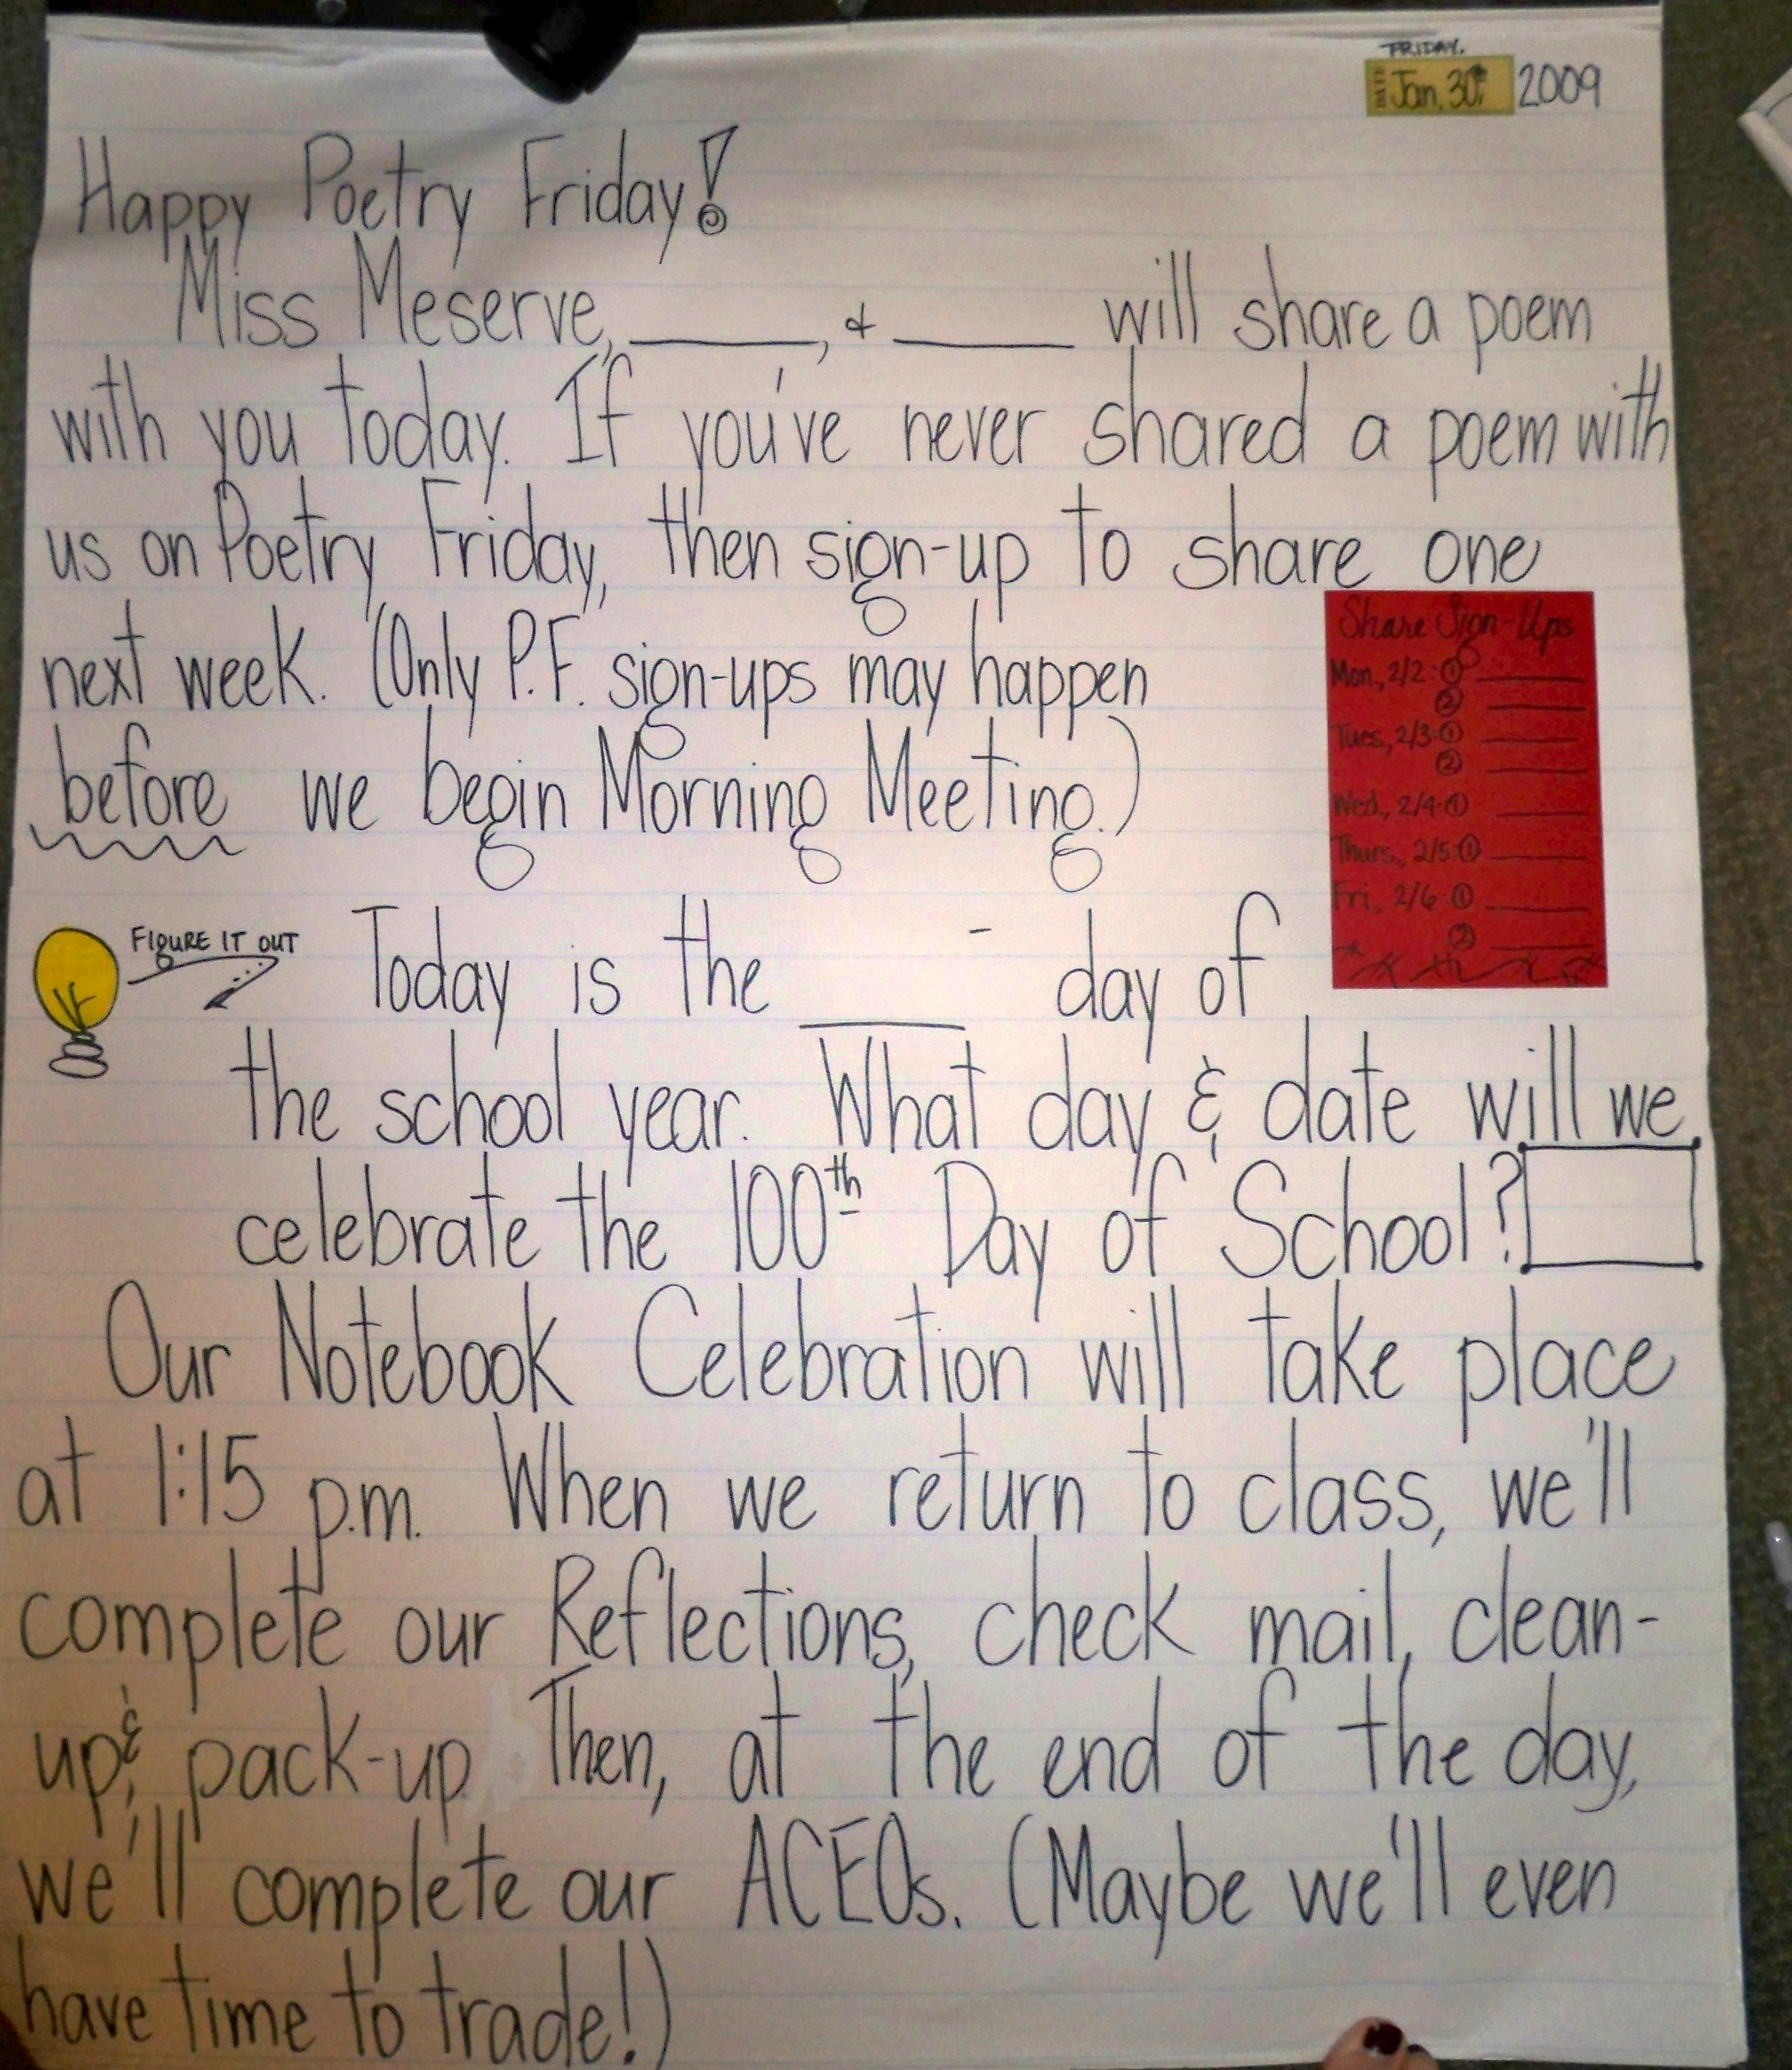 FRIDAY,
DATE Jan. 30th, 2009
Happy Poetry Friday!
Miss Meserve, ______, & ______ will share a poem
with you today. If you've never shared a poem with
us on Poetry Friday, then sign-up to share one
next week. (Only P.F. sign-ups may happen
before we begin Morning Meeting.)
Share Sign-Ups
Mon., 2/2: ① ______
② ______
Tues., 2/3: ① ______
② ______
Wed., 2/4: ① ______
Thurs., 2/5: ① ______
Fri., 2/6: ① ______
② ______
FIGURE IT OUT
Today is the ______ - day of
the school year. What day & date will we
celebrate the 100th Day of School?
Our Notebook Celebration will take place
at 1:15 p.m. When we return to class, we'll
complete our Reflections, check mail, clean-
up, & pack-up. Then, at the end of the day,
we'll complete our ACEOs. (Maybe we'll even
have time to trade!)